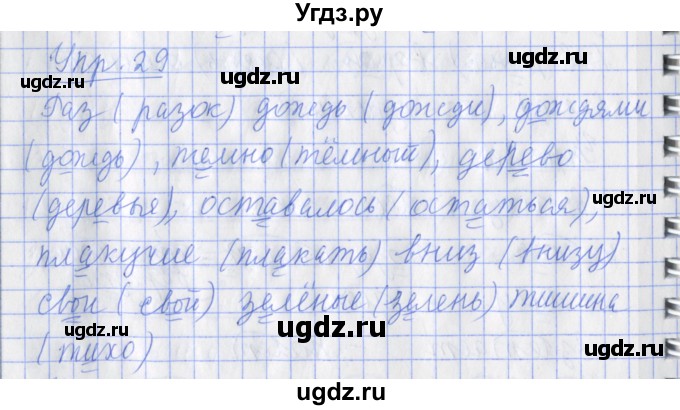 Угдз.ру
Упр. 29
ugdz.ru ugdz.ru
Раз (разок) дождь (дожди), дождями
ugdz.ru
(дождь), темно (тёмный), дерево
ugdz.ru
(деревья), оставалось (остаться),
плакучие (плакать) вниз (внизу)
ugdz.ru ugdz.ru
свои (свой) зелёные (зелень) тишина
ugdz.ru
(тихо)
ugdz.ru
ugdz.ru